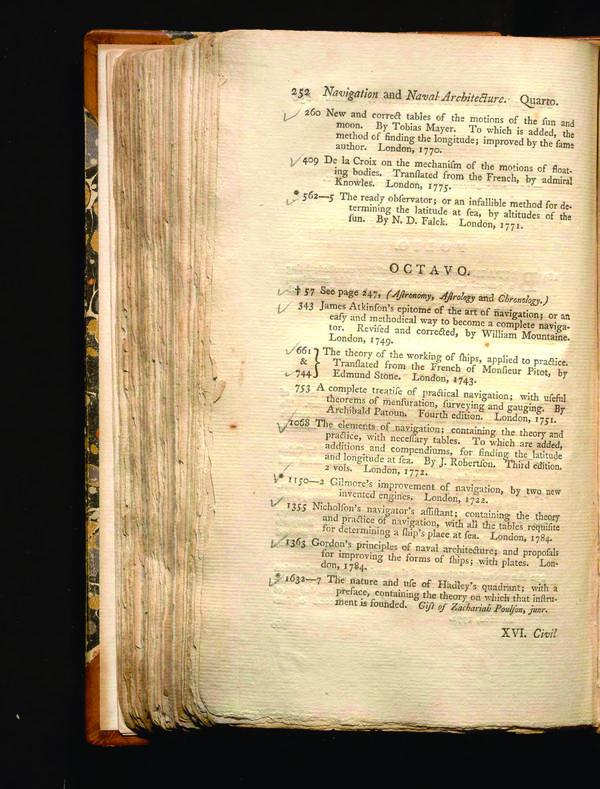 252 Navigation and Naval Architecture. Quarto.
260 New and correct tables of the motions of the ſun and
moon. By Tobias Mayer. To which is added, the
method of finding the longitude; improved by the ſame
author. London, 1770.
409 De la Croix on the mechaniſm of the motions of float-
ing bodies. Tranſlated from the French, by admiral
Knowles. London, 1775.
* 562—5 The ready obſervator; or an infallible method for de-
termining the latitude at ſea, by altitudes of the
ſun. By N. D. Falck. London, 1771.
OCTAVO.
† 57 See page 247, (Aſtronomy, Aſtrology and Chronology.)
343 James Atkinſon's epitome of the art of navigation; or an
eaſy and methodical way to become a complete naviga-
tor. Reviſed and corrected, by William Mountaine.
London, 1749.
661 } The theory of the working of ſhips, applied to practice.
& } Tranſlated from the French of Monſieur Pitot, by
744 } Edmund Stone. London, 1743.
753 A complete treatiſe of practical navigation; with uſeful
theorems of menſuration, ſurveying and gauging. By
Archibald Patoun. Fourth edition. London, 1751.
1068 The elements of navigation; containing the theory and
practice, with neceſſary tables. To which are added,
additions and compendiums, for finding the latitude
and longitude at ſea. By J. Robertſon. Third edition.
2 vols. London, 1772.
* 1150—2 Gilmore's improvement of navigation, by two new
invented engines. London, 1722.
1355 Nicholſon's navigator's aſſiſtant; containing the theory
and practice of navigation, with all the tables requiſite
for determining a ſhip's place at ſea. London, 1784.
1363 Gordon's principles of naval architecture; and propoſals
for improving the forms of ſhips; with plates. Lon-
don, 1784.
* 1632—7 The nature and uſe of Hadley's quadrant; with a
preface, containing the theory on which that inſtru-
ment is founded. Gift of Zachariah Poulſon, junr.
XVI. Civil